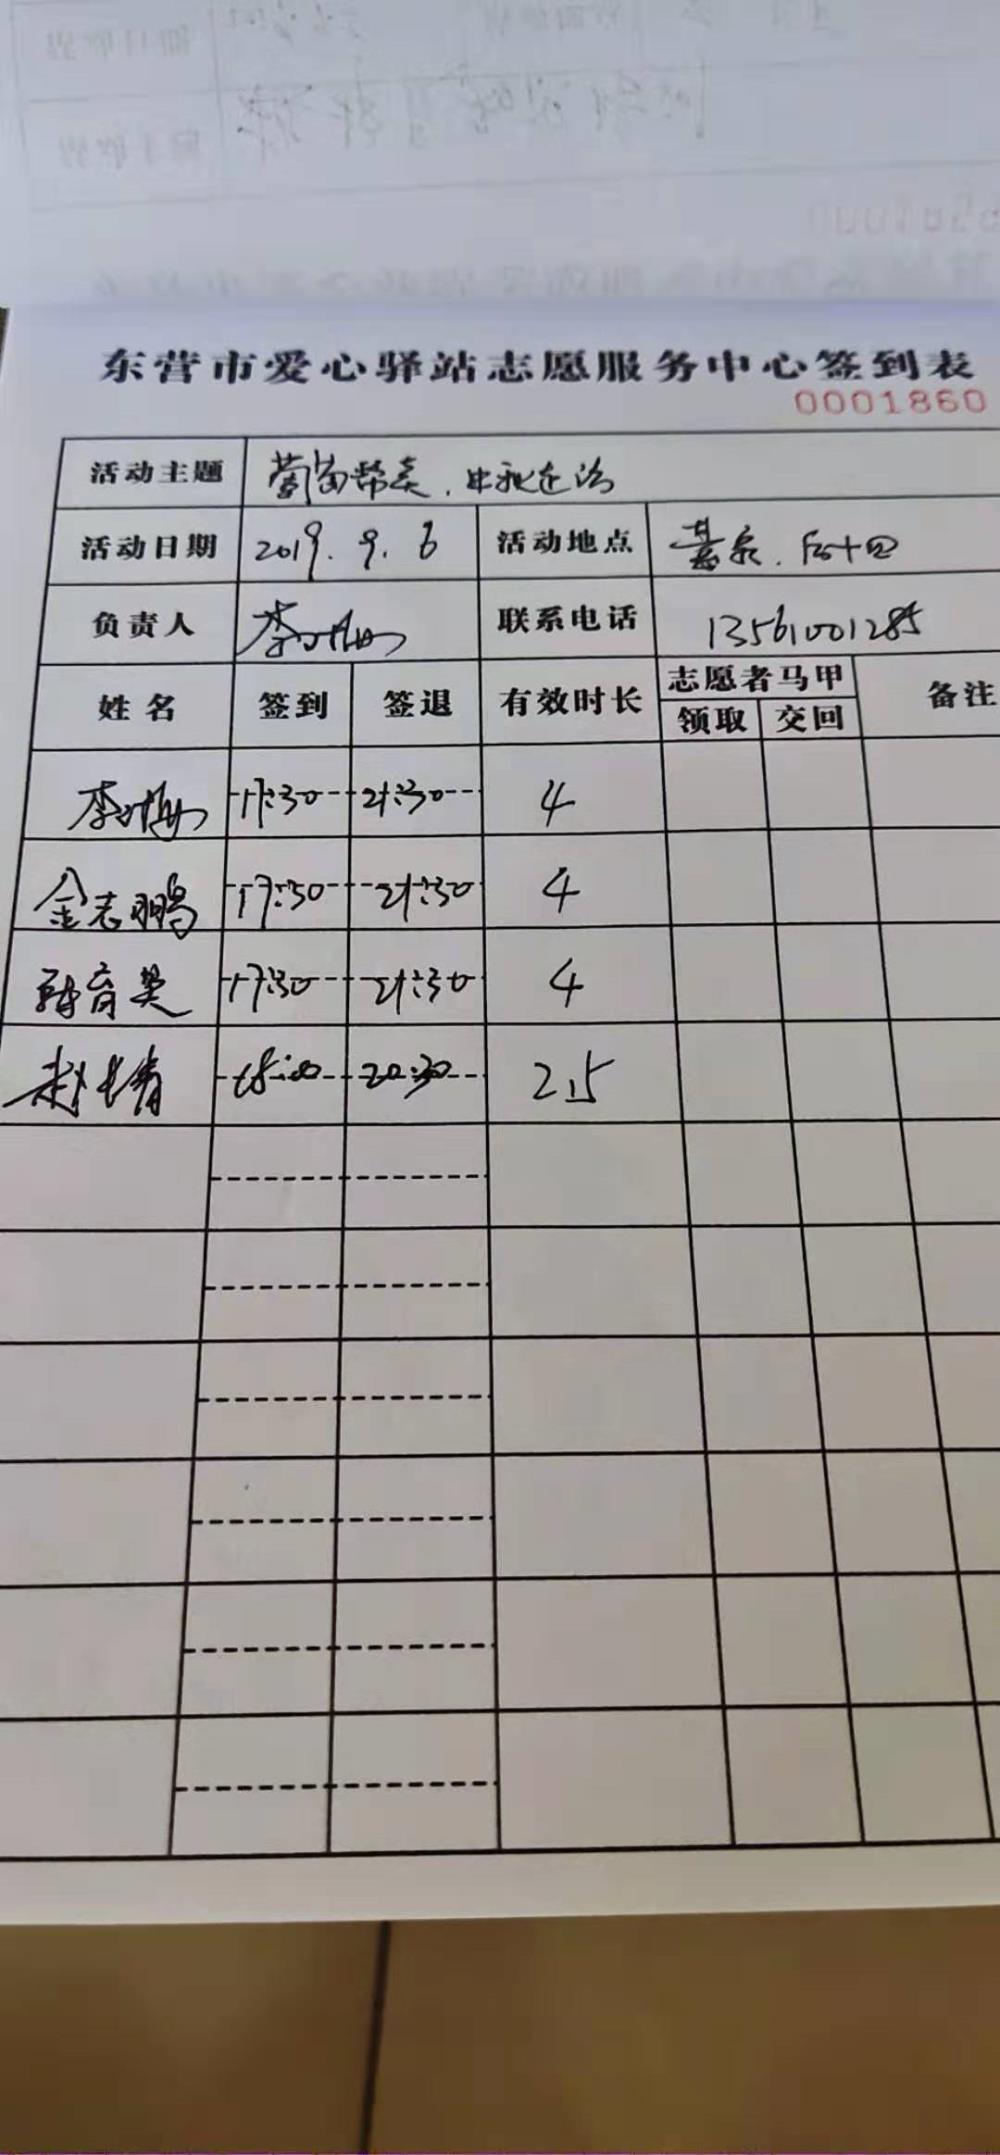 东营市爱心驿站志愿服务中心签到表
0001860
活动主题 葡萄帮卖.中秋送
活动日期 2019.9.6 活动地点
负责人 李 联系电话 13561001285
姓名 签到 签退 有效时长 志愿者马甲 备注
领取 交回
李 17:30 21:30 4
金志鹏 17:30 21:30 4
17:30 21:30 4
赵 18:00 20:30 2.5